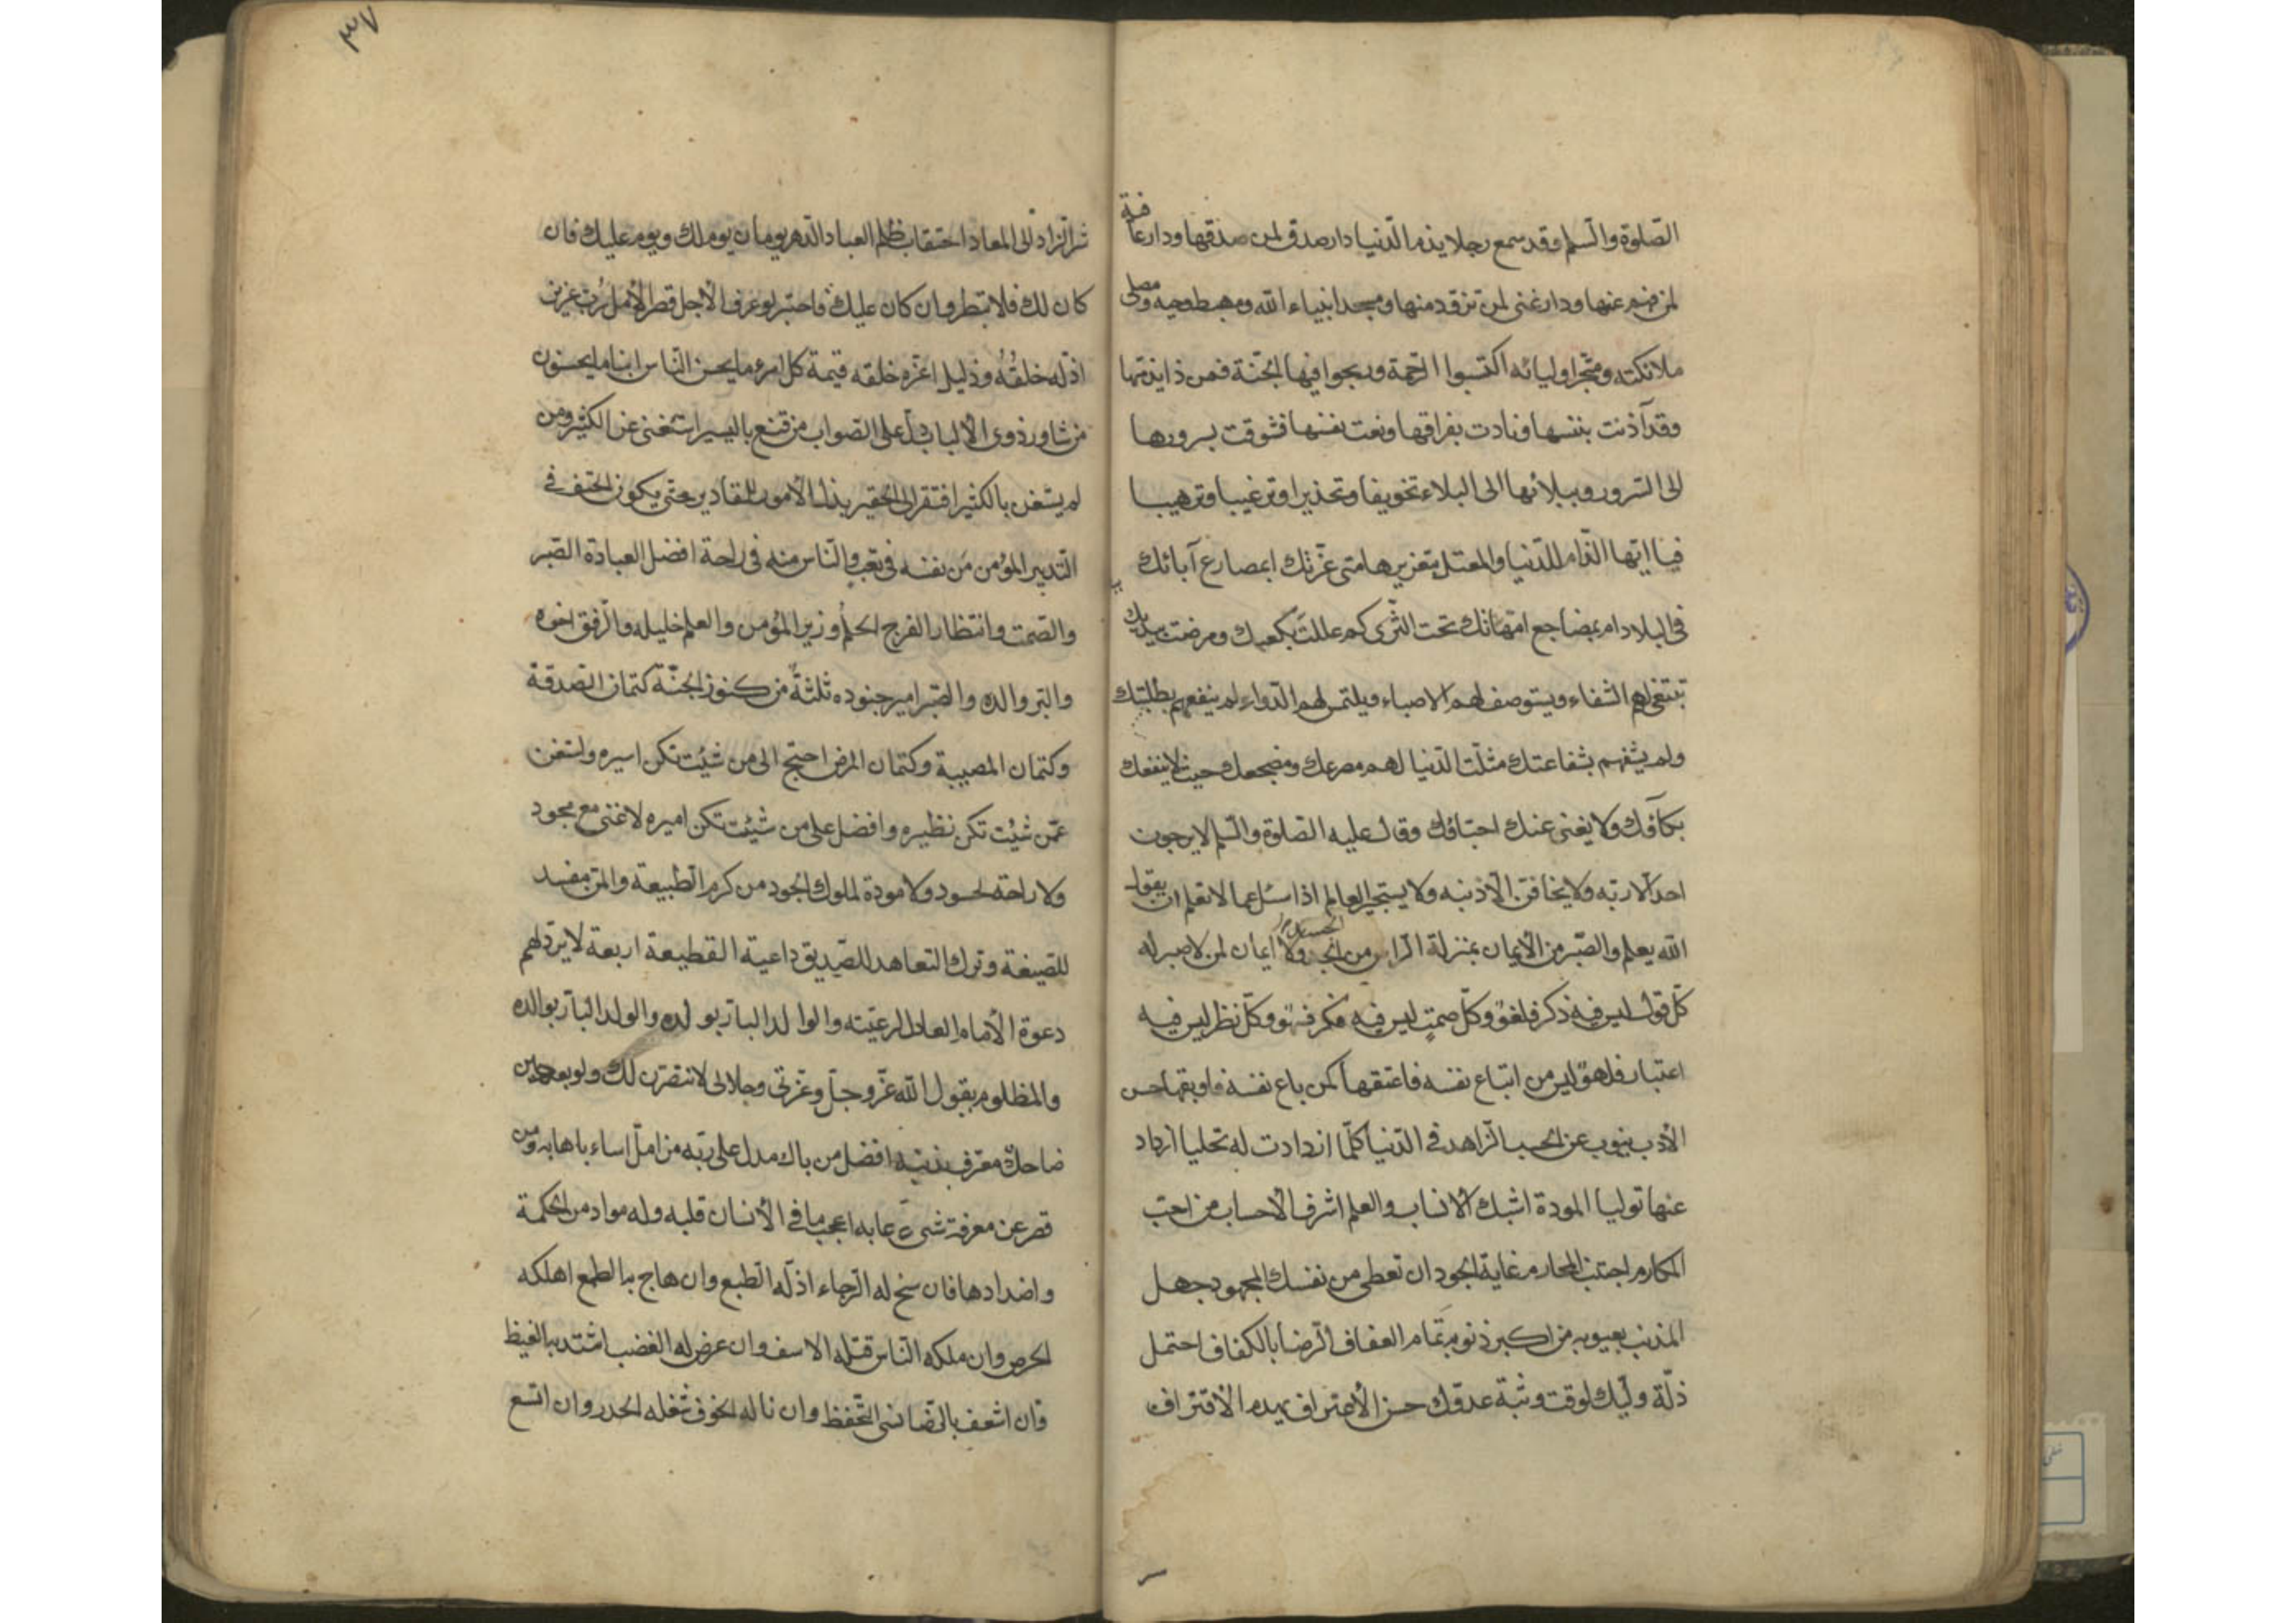 الصّلوة والسّلم وقد سمع رجلا يذم الدّنيا دار صدق لمن صدقها ودار عافية
لمن فهم عنها ودار غنى لمن تزوّد منها ومسجد انبياء الله ومهبط وحيه ومصلى
ملائكته ومتّجر اوليائه اكتسبوا الرّحمة وربحوا فيها الجنّة فمن ذا يذمّها
وقد آذنت ببينها ونادت بفراقها ونعت نفسها فشوقت بسرورها
الى السّرور وببلائها الى البلاء تخويفا وتحذيرا وترغيبا وترهيبا
فيا ايّها الذّام للدّنيا والمعتل بتغريرها متى غرّتك ابمصارع آبائك
فى البلاد ام بمضاجع امّهاتك تحت الثّرى كم عللت بكفيك ومرضت بيديك
تبتغى لهم الشفاء ويستوصف لهم الاطباء ويلتمس لهم الدّواء لم ينفعهم بطلبتك
ولم يشفهم بشفاعتك مثّلت الدّنيا لهم مصرعك ومضجعك حيث لا ينفعك
بكآؤك ولا يغنى عنك احبّاؤك وقال عليه الصّلوة والسّلم لا يرجون
احد الّا ربّه ولا يخافنّ الّا ذنبه ولا يستحى العالم اذا سئل عما لا تعلم ان يقول
الله يعلم والصّبر من الأيمان بمنزلة الرّاس من الجسد ولا ايمان لمن لا صبر له
كلّ قول ليس فيه ذكر فلغوٌ وكلّ صمتٍ ليس فيه فكر فسهو وكلّ نظر ليس فيه
اعتبار فلهوٌ ليس من ابتاع نفسه فاعتقها كمن باع نفسه فاوبقها حسن
الأدب ينوب عن الحسب الزّاهد فى الدّنيا كلّما ازدادت له تحليا ازداد
عنها توليا المودة اشبك الانساب والعلم اشرف الأحساب من احبّ
المكارم اجتنب المحارم غاية الجود ان تعطى من نفسك المجهود جهل
المذنب بعيوبه من اكبر ذنوبه تمام العفاف الرّضا بالكفاف احتمل
ذلّة وليّك لوقت وثبة عدوّك حسن الأعتراف يهدم الأقتراف
٣٧
شر الزاد الى المعاد احتقاب ظلم العباد الدّهر يومان يوم لك ويوم عليك فان
كان لك فلا تبطر وان كان عليك فاصبر لو عرف الأجل قصر الأمل ربّ عزيز
اذلّه خلقُهُ وذليل اعزّه خلقه قيمة كل امرء ما يحسن النّاس ابناء ما يحسنون
من شاور ذوى الألباب دلّ على الصّواب من قنع باليسير استغنى عن الكثير ومن
لم يستغن بالكثير افتقر الى الحقير يذل الأمور للمقادير حتى يكون الحتف فى
التّدبير المؤمن من نفسه فى تعب والنّاس منه فى راحة افضل العبادة الصّبر
والصّمت وانتظار الفرج الحلم وزير المؤمن والعلم خليله والرّفق اخوه
والبر والده والصّبر امير جنوده ثلثةٌ من كنوز الجنّة كتمان الصّدقة
وكتمان المصيبة وكتمان المرض احتج الى من شئت تكن اسيره واستغن
عمّن شئت تكن نظيره وافضل على من شئت تكن اميره لا غنى مع مجود
ولا راحة لحسود ولا مودة لملوك الجود من كرم الطّبيعة والمنّ مفسد
للصنيعة وترك التعاهد للصّديق داعية القطيعة اربعة لا يردّ لهم
دعوة الأمام العادل لرعيّته والوالد البارّ بولده والولد البارّ بوالده
والمظلوم يقول الله عزّ وجلّ وعزّتى وجلالى لانتصرّن لك ولو بعد حين
ضاحك معترف بذنبه افضل من باك مدل على ربّه من امل اساء باهابه ومن
قصر عن معرفة شىء عابه اعجب ما فى الأنسان قلبه وله مواد من الحكمة
واضدادها فان سنح له الرّجاء اذلّه الطّبع وان هاج به الطمع اهلكه
الحرص وان ملكه النّاس قتله الاسف وان عرض له الغضب اشتد به الغيظ
وان اسعف بالرّضا نسى التحّفظ وان ناله الخوف شغله الحذر وان اتّسع